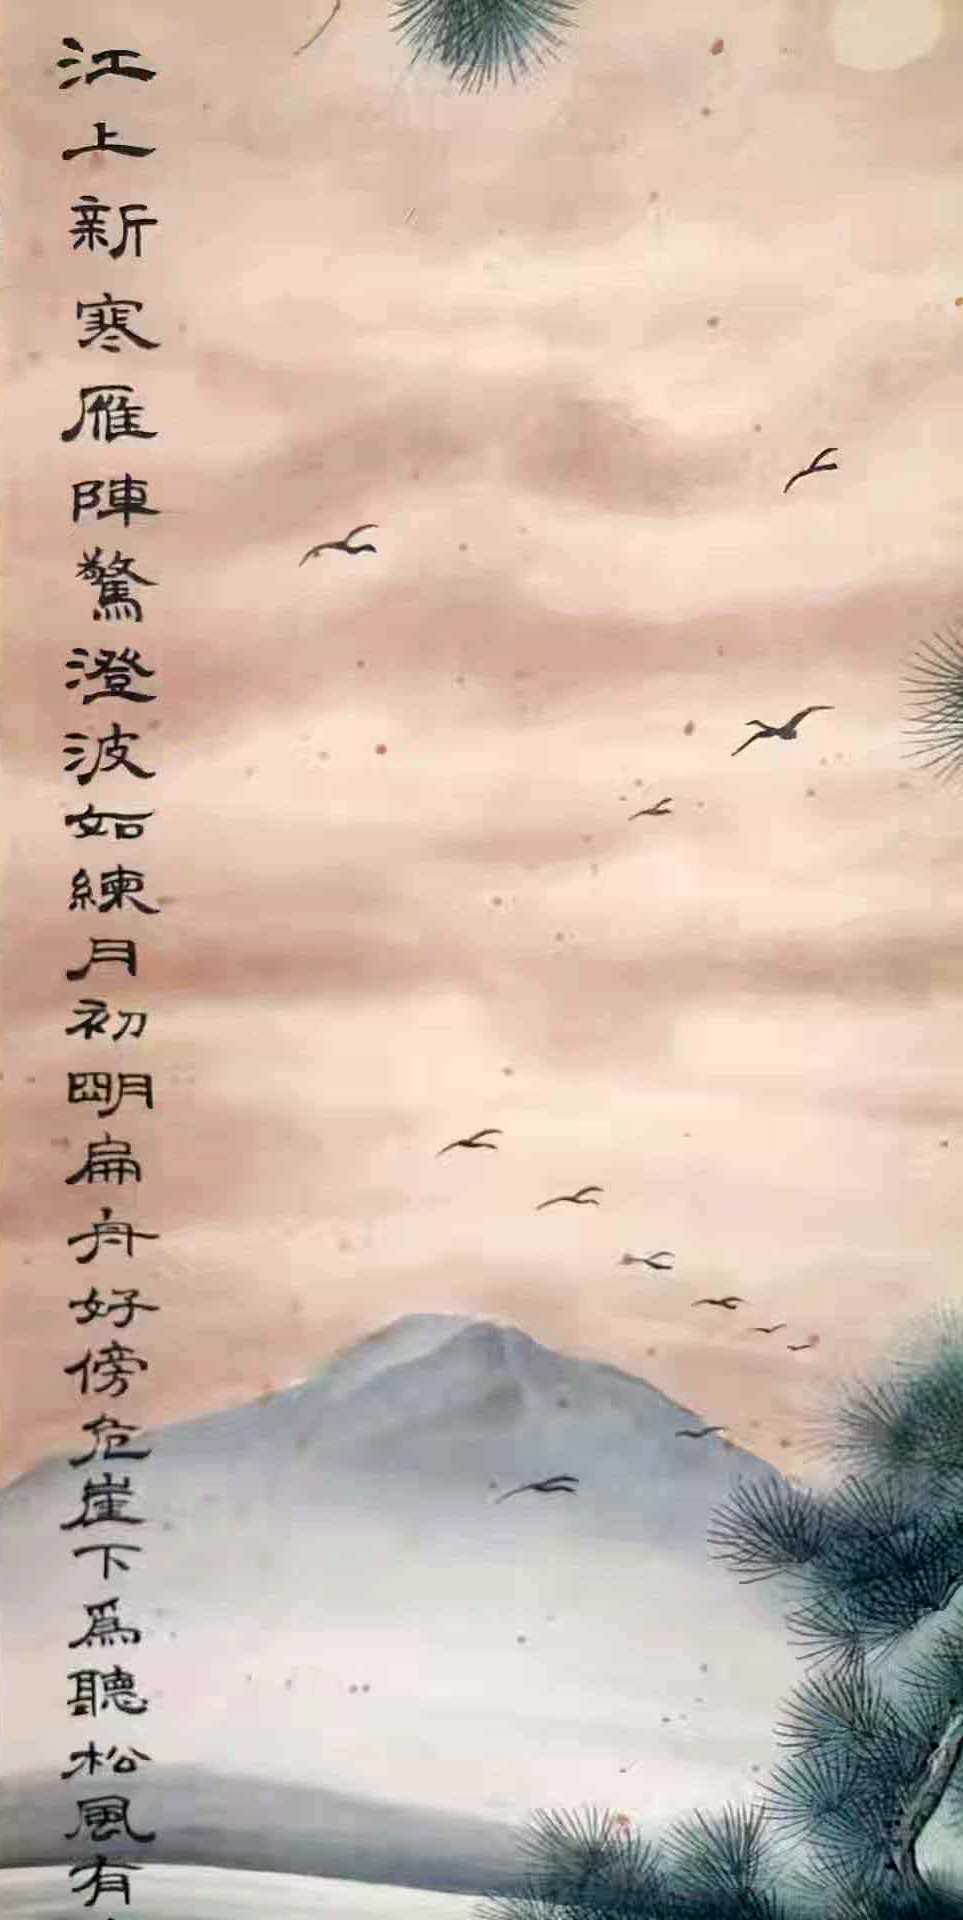 江上新寒雁陣驚澄波如練月初朙扁舟好傍危崖下爲聽松風有